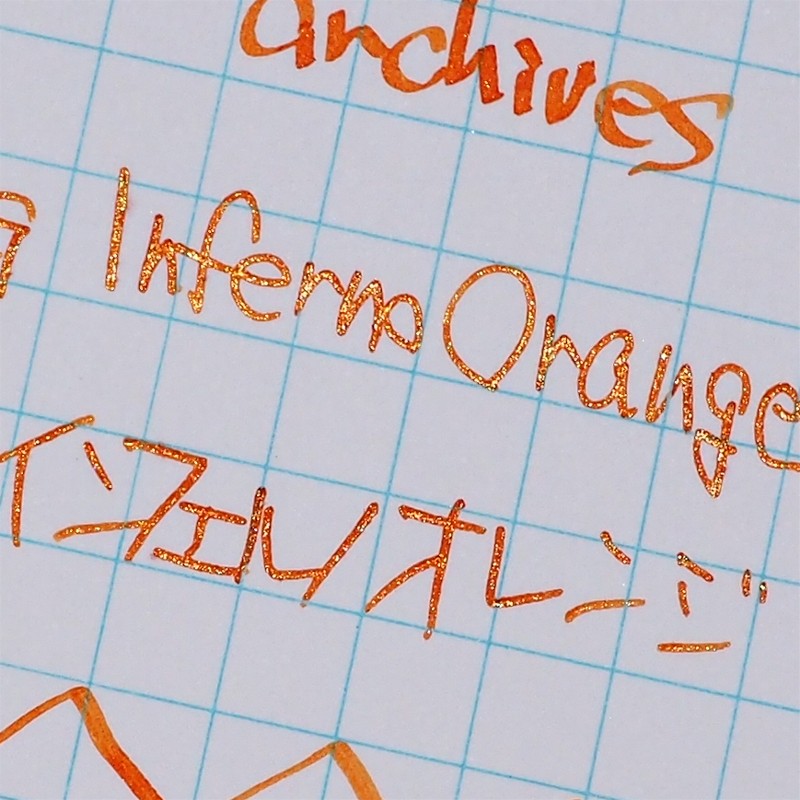 archives
Inferno Orange
インフェルノオレンジ